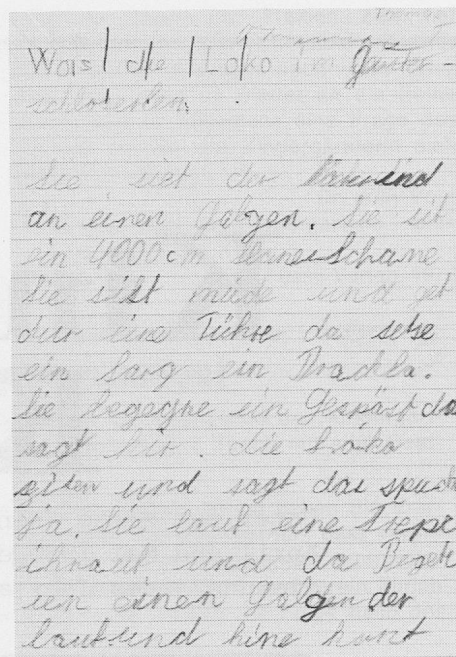 Thomas T
Was die Loko im Geister-
schlo erlen.
Sie siet der
an einen Galgen. Sie sit
ein 4000 cm Schane
Sie sist müde und get
dur eine Tühre da sehe
ein Sarg ein Drachla.
Sie begegne ein Gespäst da
sagt hir. die Loko
und sagt das spuck
ja. Sie lauf eine Trepe
ihrauf und da Begeh
ien einen Galgen der
lauf und hine hant